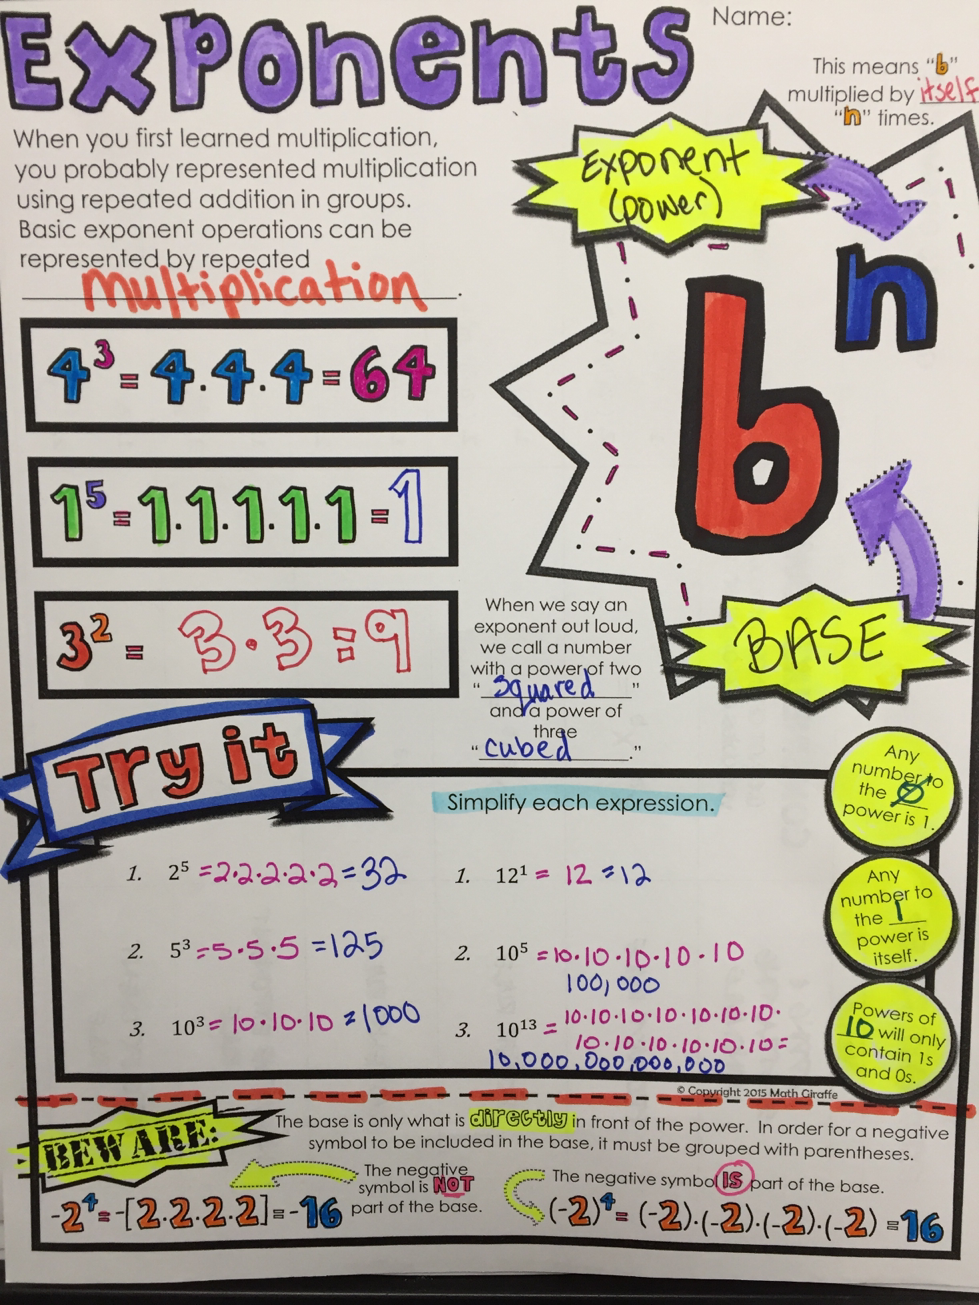 Exponents
Name:
This means “b”
multiplied by itself
“n” times.
When you first learned multiplication,
you probably represented multiplication
using repeated addition in groups.
Basic exponent operations can be
represented by repeated
multiplication.
Exponent
(power)
bⁿ
BASE
4³ = 4·4·4 = 64
1⁵ = 1·1·1·1·1 = 1
3² = 3·3 = 9
When we say an
exponent out loud,
we call a number
with a power of two
“squared”
and a power of
three
“cubed.”
Try it
Simplify each expression.
1. 2⁵ = 2·2·2·2·2 = 32
2. 5³ = 5·5·5 = 125
3. 10³ = 10·10·10 = 1000
1. 12¹ = 12 = 12
2. 10⁵ = 10·10·10·10·10
100,000
3. 10¹³ = 10·10·10·10·10·10·10·
10·10·10·10·10·10 =
10,000,000,000,000
Any
number to
the 0
power is 1.
Any
number to
the 1
power is
itself.
Powers of
10 will only
contain 1s
and 0s.
© Copyright 2015 Math Giraffe
BEWARE:
The base is only what is directly in front of the power. In order for a negative
symbol to be included in the base, it must be grouped with parentheses.
The negative
symbol is NOT
part of the base.
-2⁴ = -[2·2·2·2] = -16
The negative symbol IS part of the base.
(-2)⁴ = (-2)·(-2)·(-2)·(-2) = 16